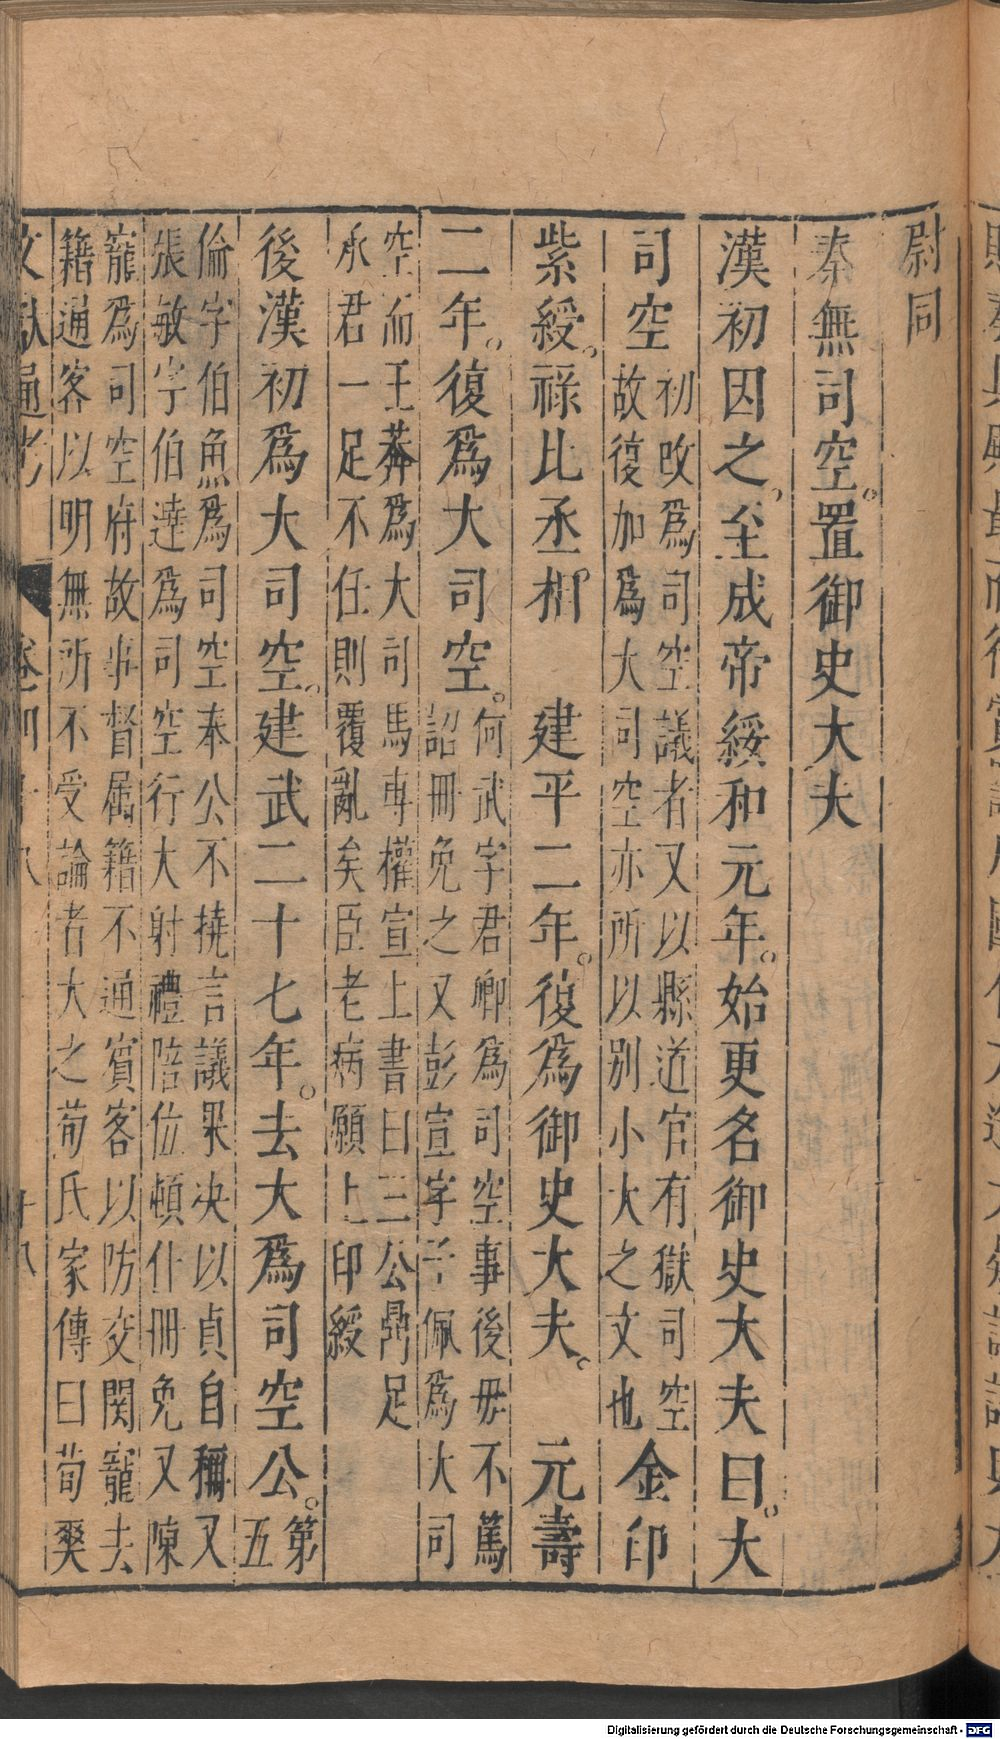 尉同
秦無司空置御史大夫
漢初因之至成帝綏和元年始更名御史大夫曰大
司空初改爲司空議者又以縣道官有獄司空故復加爲大司空亦所以別小大之文也金印
紫綬祿比丞相　建平二年復爲御史大夫　元壽
二年復爲大司空何武字君卿爲司空事後母不篤詔冊免之又彭宣字子佩爲大司
空而王莽爲大司馬專權宣上書曰三公鼎足承君一足不任則覆亂矣臣老病願上印綬
後漢初爲大司空建武二十七年去大爲司空公第五
倫字伯魚爲司空奉公不撓言議果决以貞自稱又張敏字伯達爲司空行大射禮陪位頓仆冊免又陳
寵爲司空府故事督屬籍不通賓客以防交関寵去籍通客以明無所不受論者大之荀氏家傳曰荀爽
文獻通考　卷四十八　十八
Digitalisierung gefördert durch die Deutsche Forschungsgemeinschaft - DFG